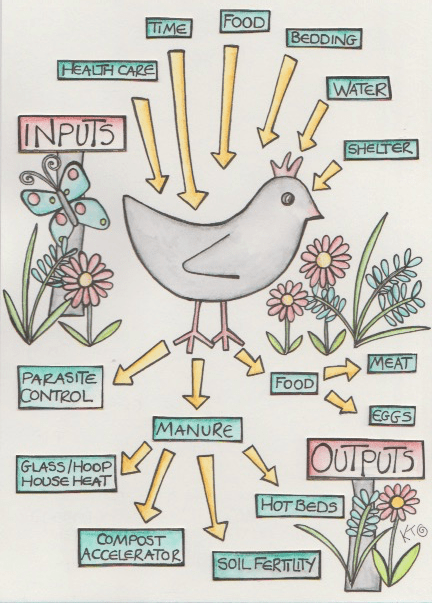 TIME
FOOD
BEDDING
HEALTH CARE
WATER
INPUTS
SHELTER
PARASITE
CONTROL
FOOD
MEAT
EGGS
MANURE
OUTPUTS
GLASS/HOOP
HOUSE HEAT
HOT BEDS
COMPOST
ACCELERATOR
SOIL FERTILITY